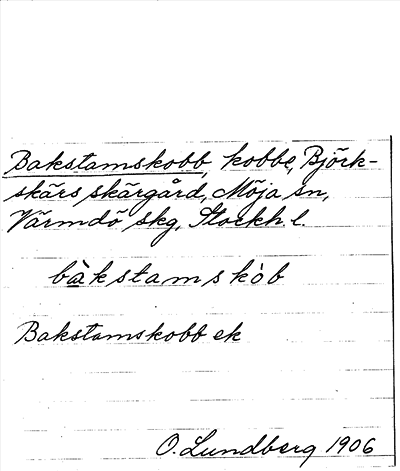 Bakstamskobb, kobbe, Björk-
skärs skärgård, Möja sn,
Värmdö skg, Stockh. l.
bàkstamskòb
Bakstamskobb ek
O. Lundberg 1906